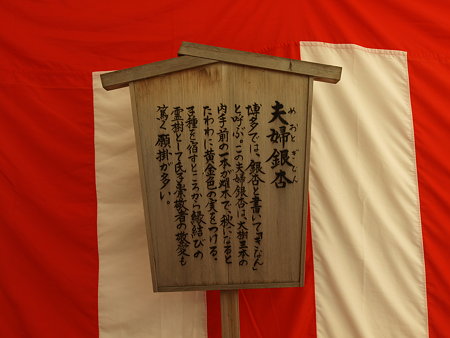 夫婦銀杏
めおとぎなん
博多では、銀杏と書いて「ぎなん」
と呼ぶ。この夫婦銀杏は、大樹三本の
内手前の一本が雌木で、秋になると
たわわに黄金色の実をつける。
種を宿すところから縁結びの
霊樹として氏子崇敬者の敬愛も
篤く願掛が多い。